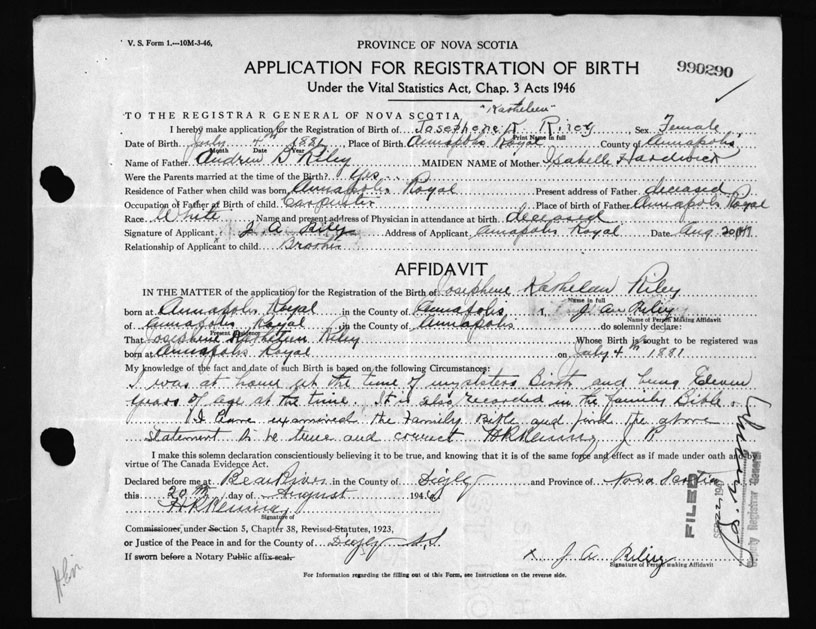 V. S. Form 1.—10M-3-46,
PROVINCE OF NOVA SCOTIA
APPLICATION FOR REGISTRATION OF BIRTH
990290
Under the Vital Statistics Act, Chap. 3 Acts 1946
TO THE REGISTRAR GENERAL OF NOVA SCOTIA
I hereby make application for the Registration of Birth of Print Name in full Sex Female
Date of Birth July 4th Month Date Year Place of Birth Annapolis Royal County of Annapolis
Name of Father Andrew D Riley MAIDEN NAME of Mother Isabelle Hardwick
Were the Parents married at the time of the Birth? Yes
Residence of Father when child was born Annapolis Royal Present address of Father deceased
Occupation of Father at Birth of child Carpenter Place of birth of Father Annapolis Royal
Race White Name and present address of Physician in attendance at birth deceased
Signature of Applicant J A Riley Address of Applicant Annapolis Royal Date Aug 20
Relationship of Applicant to child Brother
AFFIDAVIT
IN THE MATTER of the application for the Registration of the Birth of Josephine Riley
Name in full
born at Annapolis Royal in the County of Annapolis I, J A Riley
Name of Person Making Affidavit
of Annapolis Royal in the County of Annapolis do solemnly declare:
Present Residence
That Josephine Riley Whose Birth is sought to be registered was
born at Annapolis Royal on July 4th 1881
My knowledge of the fact and date of such Birth is based on the following Circumstances:
I was at home at the time of my sisters Birth and being Eleven
years of age at the time. It is also recorded in the family Bible.
I have examined the Family Bible and find the above
statement to be true and correct J P
I make this solemn declaration conscientiously believing it to be true, and knowing it is of the same force and effect as if made under oath and by
virtue of The Canada Evidence Act.
Declared before me at Bear River in the County of Digby and Province of Nova Scotia
this 20th day of August 194
Signature of
Commissioner, under Section 5, Chapter 38, Revised Statutes, 1923,
or Justice of the Peace in and for the County of Digby N.S.
If sworn before a Notary Public affix seal.
x J. A. Riley
Signature of Person making Affidavit
For Information regarding the filling out of this Form, see Instructions on the reverse side.
FILED
Deputy Registrar General